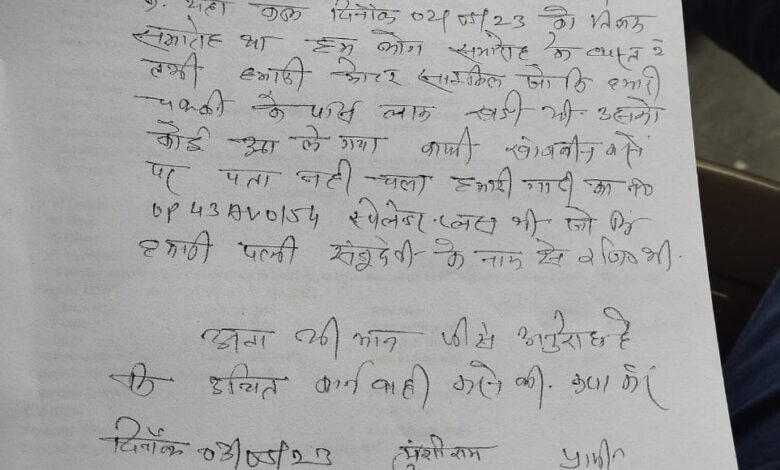 यहा कल दिनाँक 02/05/23 को तिलक
समारोह था हम लोग समारोह के व्यस्त थे
तभी हमारी मोटर साइकिल जो कि हमारी
चक्की के पास लाक खडी थी उसको
कोई उठा ले गया काफी खोजबीन करने
पर पता नही चला हमारी गाडी का न०
UP43AV0154 स्पेलेंडर प्लस थी जो कि
हमारी पत्नी संजूदेवी के नाम से रजि० थी.
अतः श्री मान जी से अनुरोध है
कि उचित कार्यवाही करने की कृपा करें
दिनाँक 03/05/23 मुंशीराम प्रार्थी